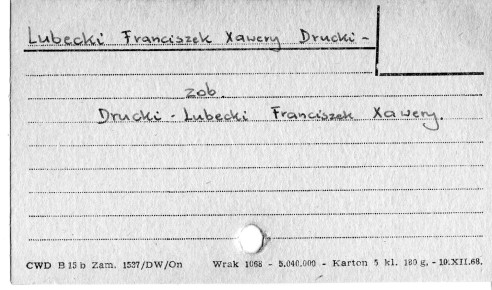 Lubecki Franciszek Xawery Drucki -
zob.
Drucki - Lubecki Franciszek Xawery.
CWD B 15 b Zam. 1537/DW/On Wrak 1068 - 5.040.000 - Karton 5 kl. 180 g. - 10.XII.68.